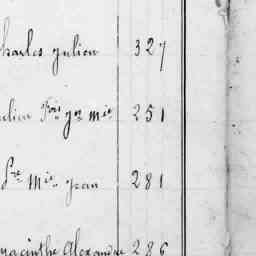 harles julien 327
ulien Fois gn mie 251
Pre Mie jean 281
hyacinthe Alexandre 286